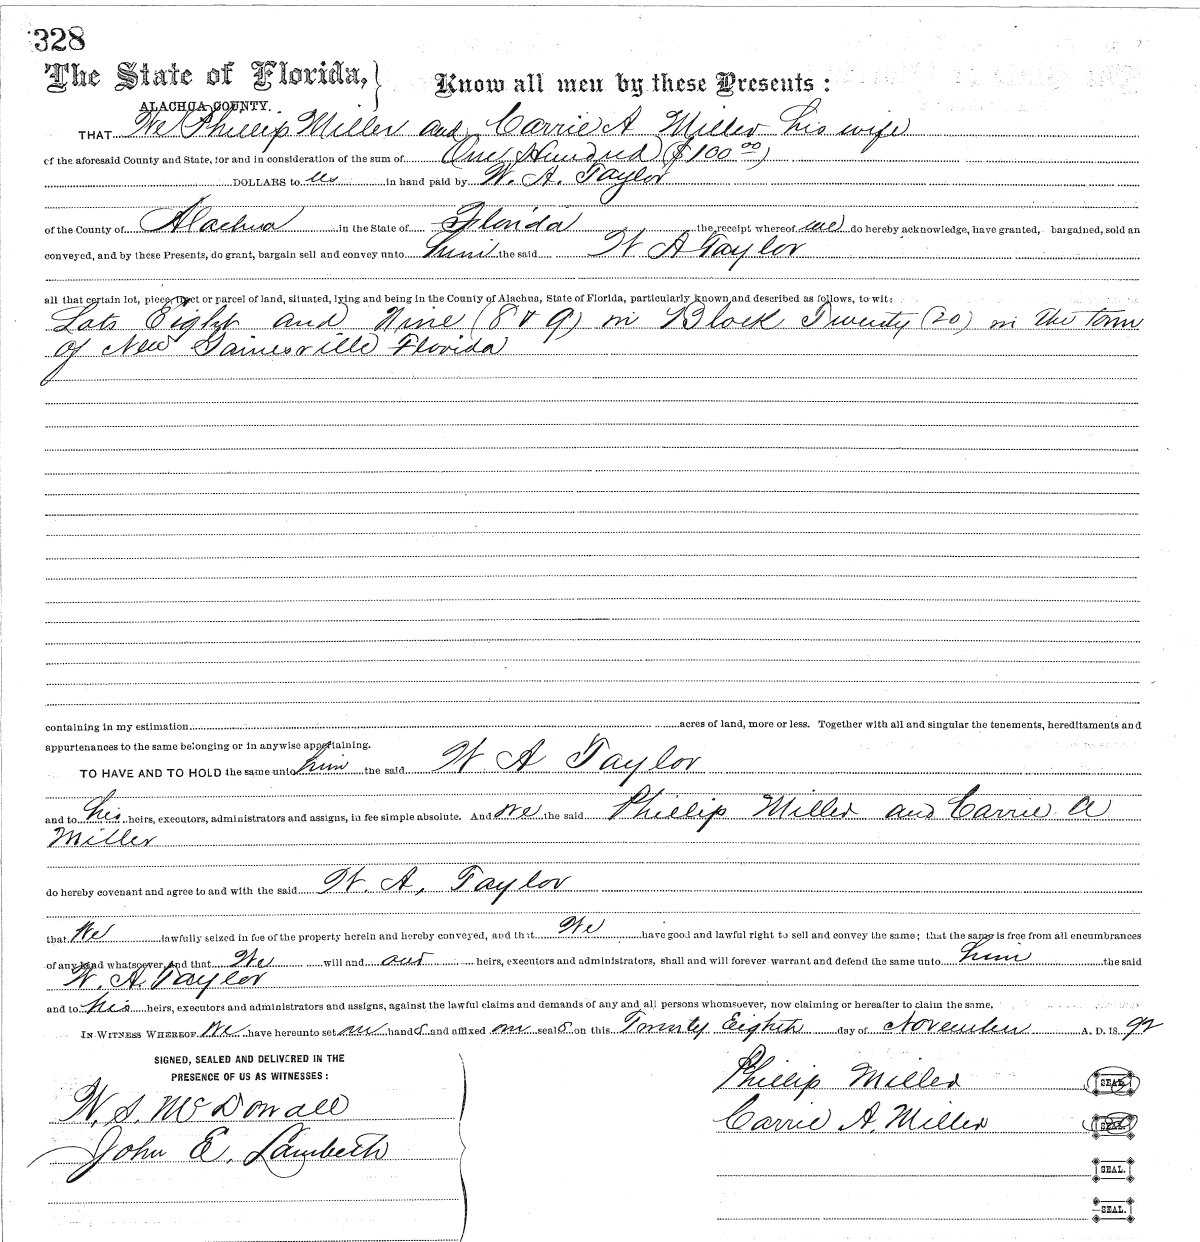 328
The State of Florida, } Know all men by these Presents :
ALACHUA COUNTY.
THAT We Phillip Miller and Carrie A Miller his wife
of the aforesaid County and State, for and in consideration of the sum of One Hundred ($100 00)
DOLLARS to us in hand paid by W. A. Taylor
of the County of Alachua in the State of Florida the receipt whereof we do hereby acknowledge, have granted, bargained, sold an
conveyed, and by these Presents, do grant, bargain sell and convey unto him the said W A Taylor
all that certain lot, piece, tract or parcel of land, situated, lying and being in the County of Alachua, State of Florida, particularly known and described as follows, to wit:
Lots Eight and Nine (8 & 9) in Block Twenty (20) in the town
of New Gainesville Florida
containing in my estimation acres of land, more or less. Together with all and singular the tenements, hereditaments and
appurtenances to the same belonging or in anywise appertaining.
TO HAVE AND TO HOLD the same unto him the said W A Taylor
and to his heirs, executors, administrators and assigns, in fee simple absolute. And we the said Phillip Miller and Carrie A
Miller
do hereby covenant and agree to and with the said W. A. Taylor
that We lawfully seized in fee of the property herein and hereby conveyed, and that We have good and lawful right to sell and convey the same; that the same is free from all encumbrances
of any kind whatsoever, and that We will and our heirs, executors and administrators, shall and will forever warrant and defend the same unto him the said
W. A. Taylor
and to his heirs, executors and administrators and assigns, against the lawful claims and demands of any and all persons whomsoever, now claiming or hereafter to claim the same.
IN WITNESS WHEREOF We have hereunto set our hands and affixed our seals on this Twenty Eighth day of November A. D. 18 92
SIGNED, SEALED AND DELIVERED IN THE
PRESENCE OF US AS WITNESSES :
W. S. McDowall
John E. Lambeth
Phillip Miller SEAL.
Carrie A. Miller SEAL.
SEAL.
SEAL.